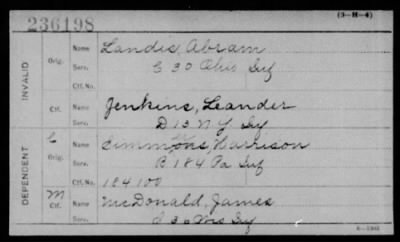 (3-H-4)
236198
INVALID
Orig.
Name
Landis, Abram
Serv.
C 30 Ohio Inf
Ctf. No.
Ctf.
Name
Jenkins, Leander
Serv.
D 13 N Y Inf
DEPENDENT
C
Orig.
Name
Simmons, Harrison
Serv.
B 184 Pa Inf
Ctf. No.
124100
M
Ctf.
Name
McDonald, James
Serv.
C 30 Mo Inf